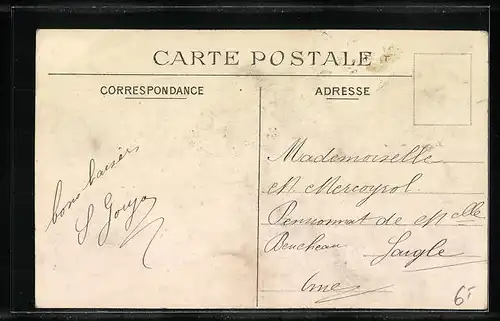 CARTE POSTALE
CORRESPONDANCE
ADRESSE
bons baisers
S Gouja
Mademoiselle
M. Mercoyrol
Pensionnat de Melle
Beucheau Laigle
Orne
6f